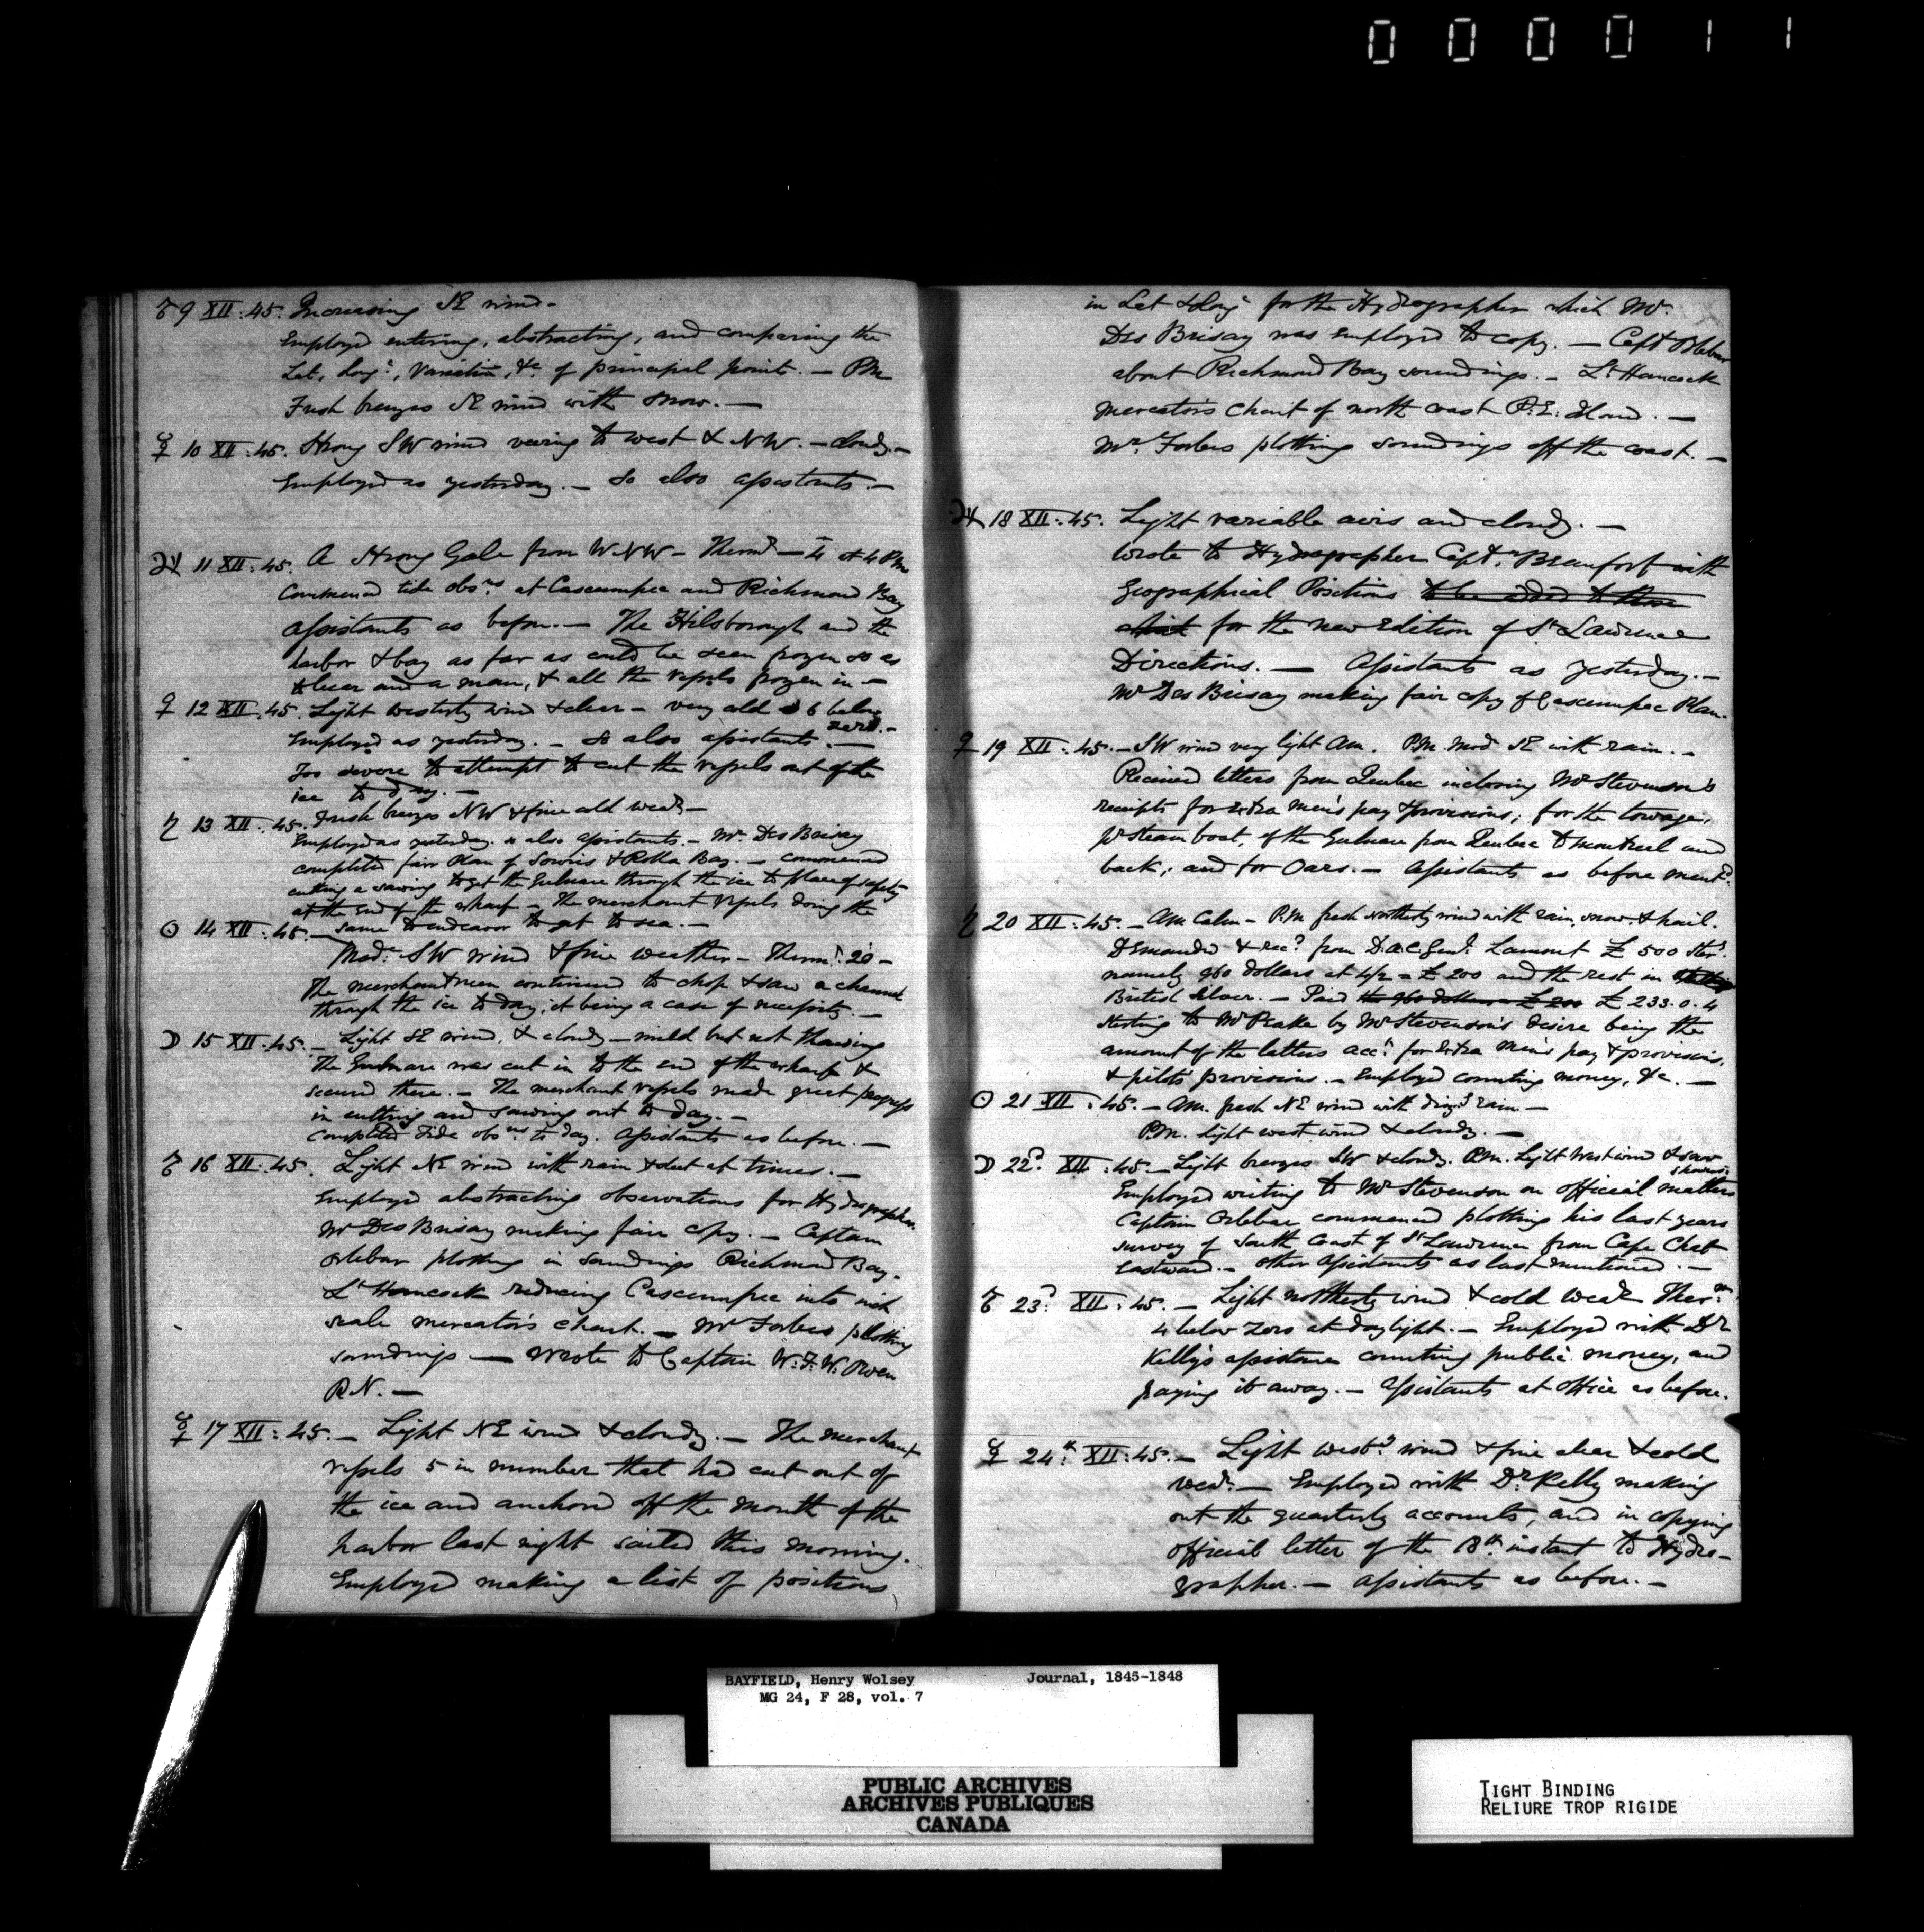 0 0 0 0 1 1
♂ 9 XII: 45. Increasing SE wind -
Employed entering, abstracting, and comparing the
Lat, Long:, Variation, &c. of principal points. — PM
Fresh breezes SE wind with snow. —
☿ 10 XII: 45. Strong SW wind veering to west & NW. — cloudy. —
Employed as yesterday. — So also assistants. —
♃ 11 XII: 45. A Strong Gale from W.NW — Therm.r — 4 at 4 PM
Commenced tide obs.ns at Cascumpec and Richmond Bay
assistants as before. — The Hilsborough and the
harbor & bay as far as could be seen frozen so as
to bear a man, & all the vessels frozen in —
♀ 12 XII: 45. Light westerly wind & clear — very cold 6 below
zero. —
Employed as yesterday. — So also assistants. —
Too severe to attempt to cut the vessels out of the
ice to day. —
♄ 13 XII: 45. Fresh breezes NW & fine cold weath.r —
Employed as yesterday so also assistants. — Mr Des Brisay
completed fair plan of Souris & Rollo Bay. — commenced
cutting & sawing to get the Gulnare through the ice to place of safety
at the end of the wharf. — The merchant vessels doing the
☉ 14 XII: 45. — same to endeavor to get to sea. —
Mod.e SW wind & fine weather — Therm.r 20 —
The merchantmen continued to chop & saw a channel
through the ice to day, it being a case of necessity. —
☽ 15 XII: 45. — Light SE wind, & cloudy — mild but not thawing
The Gulnare was cut in to the end of the wharf &
secured there. — The merchant vessels made great progress
in cutting and sawing out to day. —
Completed Tide obs.ns to day. Assistants as before. —
♂ 16 XII: 45. Light NE wind with rain & sleet at times. —
Employed abstracting observations for Hydrographer.
Mr Des Brisay making fair copy. — Captain
Orlebar plotting in soundings Richmond Bay.
Lt Hancock reducing Cascumpec into inch
scale mercator's chart. — Mr Forbes plotting
soundings — Wrote to Captain W.F.W. Owen
R.N. —
☿ 17 XII: 45. — Light NE wind & cloudy. — The merchant
vessels 5 in number that had cut out of
the ice and anchored off the mouth of the
harbor last night sailed this morning.
Employed making a list of positions
in Lat & Long for the Hydrographer which Mr
Des Brisay was employed to copy. — Capt Orlebar
about Richmond Bay soundings. — Lt Hancock
mercator's chart of north coast P.E. Island. —
Mr. Forbes plotting soundings off the coast. —
♃ 18 XII: 45. Light variable airs and cloudy. —
Wrote to Hydrographer Capt.n Beaufort with
Geographical Positions to be added to those
for the new Edition of St Lawrence
Directions. — Assistants as yesterday. —
Mr Des Brisay making fair copy of Cascumpec Plan.
♀ 19 XII: 45. — SW wind very light Am. P.M. Mod SE with rain. —
Received letters from Quebec inclosing Mr Stevenson's
receipts for extra men's pay & provisions; for the towage,
pr Steam boat, of the Gulnare from Quebec to Montreal and
back; and for Oars. — Assistants as before ment.d
♄ 20 XII: 45. — AM Calm — P.M fresh northerly wind with rain, snow, & hail.
Demanded & rec.d from D.A.C. Genl. Lamont £ 500 Ster.
namely 960 dollars at 4/2 = £ 200 and the rest in
British Silver. — Paid the 960 dollars = £ 200 £ 233.0.4
sterling to Mr Peake by Mr Stevenson's desire being the
amount of the latters acc.t for extra men's pay & provisions,
& pilots provisions. — Employed counting money, &c. —
☉ 21 XII: 45. — AM. fresh NE wind with rain —
P.M. light west wind & cloudy. —
☽ 22d. XII: 45 — Light breezes SW & cloudy. P.M. Light West wind & snow
showers.
Employed writing to Mr Stevenson on official matters
Captain Orlebar commenced plotting his last years
survey of South Coast of St Lawrence from Cape Chat
Eastward. — Other Assistants as last mentioned. —
♂ 23d. XII: 45. — Light northerly wind & cold weath. Ther.m
4 below zero at daylight. — Employed with Dr
Kelly's assistance counting public money, and
paying it away. — Assistants at office as before.
☿ 24th. XII: 45. — Light west.y wind & fine clear & cold
wea.r — Employed with Dr. Kelly making
out the quarterly accounts, and in copying
official letter of the 18th instant to Hydro-
grapher. — Assistants as before. —
BAYFIELD, Henry Wolsey Journal, 1845-1848
MG 24, F 28, vol. 7
PUBLIC ARCHIVES
ARCHIVES PUBLIQUES
CANADA
TIGHT BINDING
RELIURE TROP RIGIDE